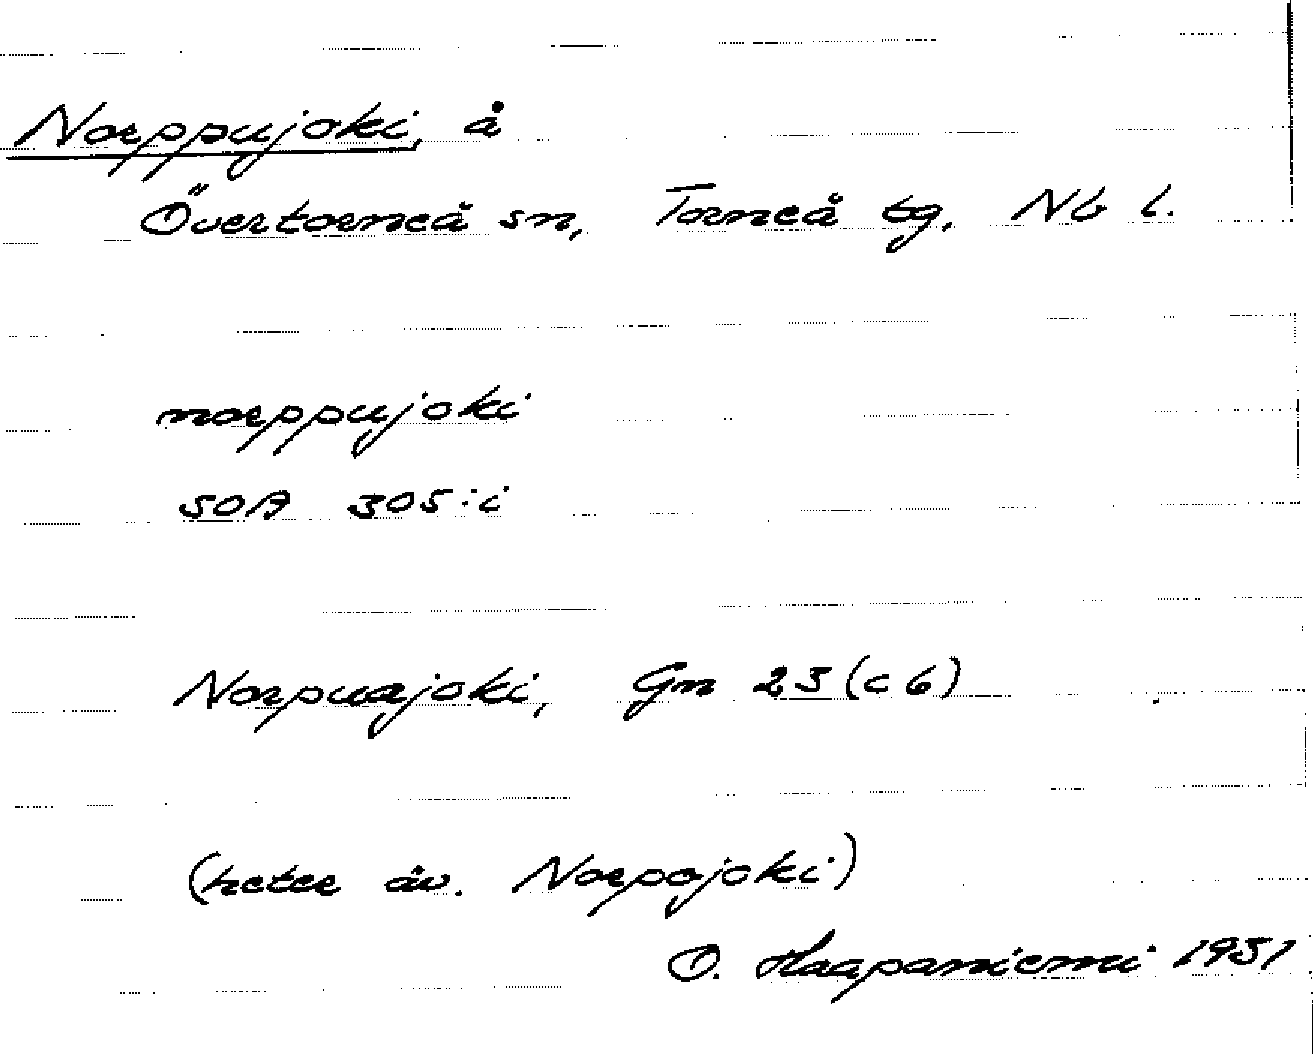 Norppujoki, å
Övertorneå sn, Torneå tg, Nb l.
norppujoki
SOA 305:i
Norpuajoki, Gn 23 (c 6)
(heter äv. Norpojoki)
O. Haapaniemi 1951